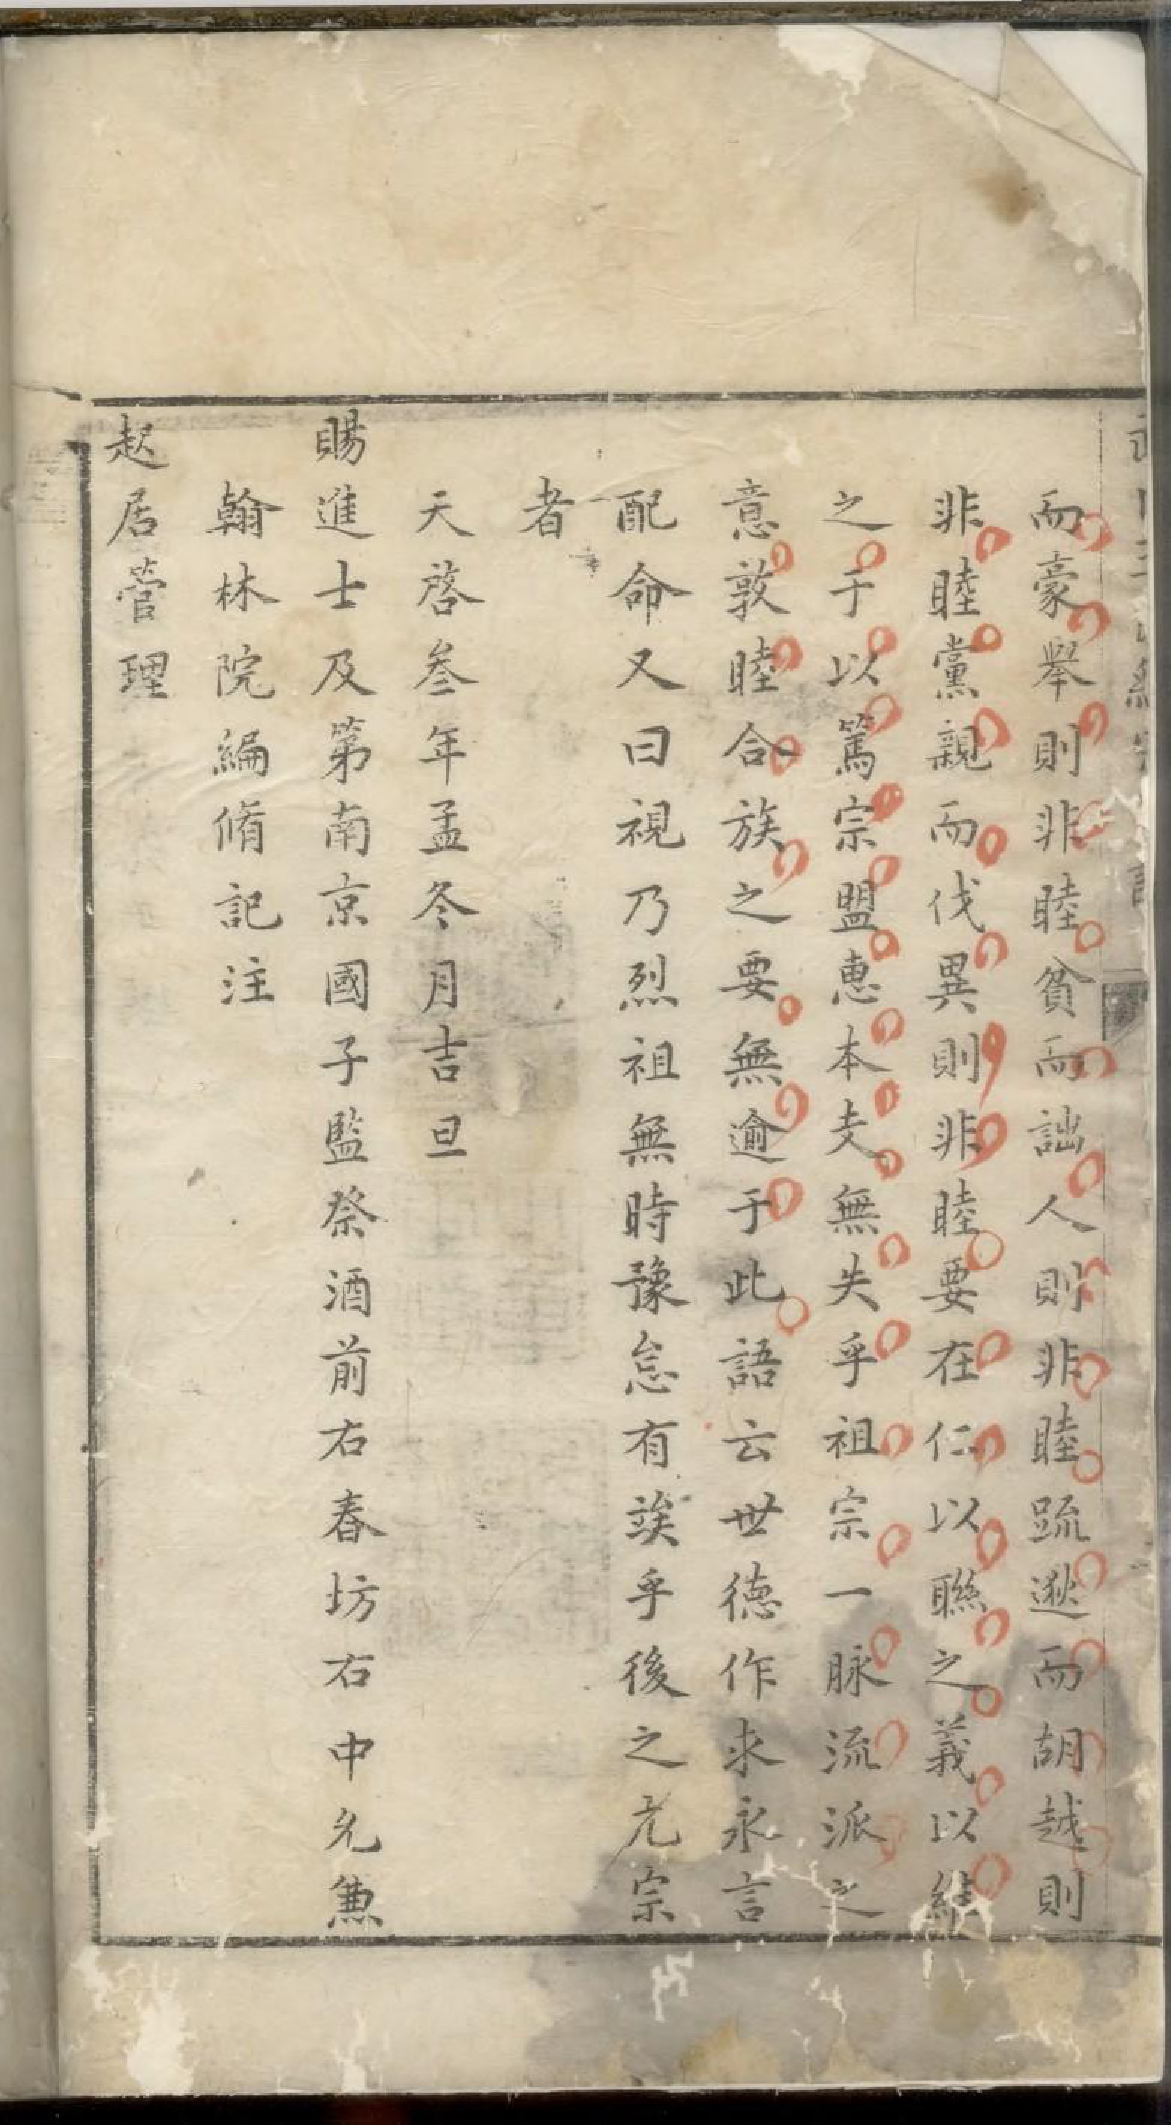 而豪舉則非睦貧而詘人則非睦䟽逖而胡越則
非睦黨親而伐異則非睦要在仁以聯之義以維
之于以篤宗盟惠本支無失乎祖宗一脉流派之
意敦睦合族之要無逾于此語云世德作求永言
配命又曰視乃烈祖無時豫怠有竢乎後之亢宗
者
天啓叄年孟冬月吉旦
賜進士及第南京國子監祭酒前右春坊右中允兼
翰林院編脩記注
起居管理